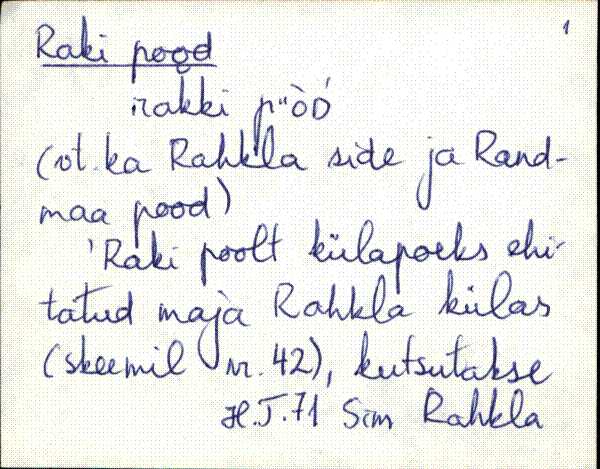 1
Raki pood
rakki püòD́
(vt. ka Rahkla side ja Rand-
maa pood)
'Raki poolt külapoeks ehi-
tatud maja Rahkla külas
(skeemil nr. 42), kutsutakse
H.T.71 Sim Rahkla